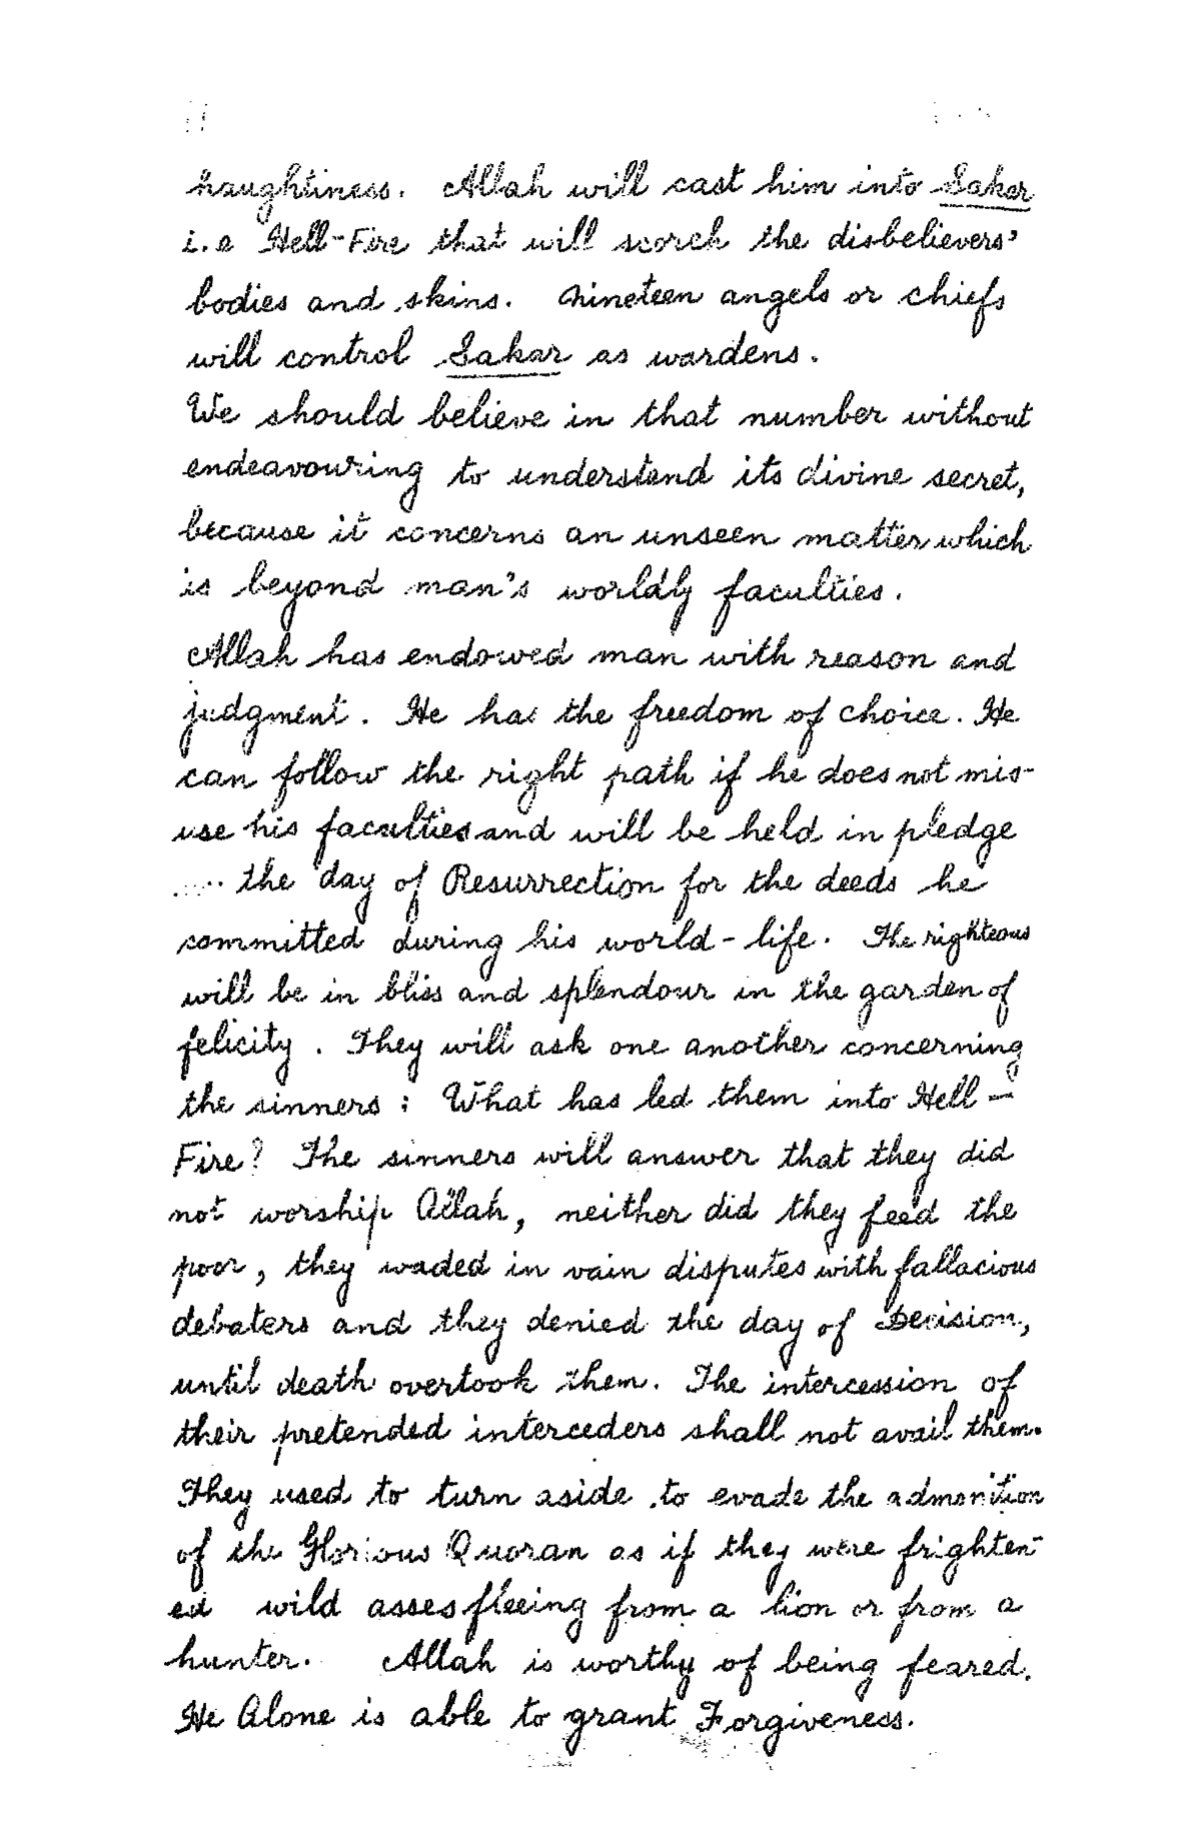 haughtiness. Allah will cast him into Sakar
i.e Hell-Fire that will scorch the disbelievers'
bodies and skins. Nineteen angels or chiefs
will control Sakar as wardens.
We should believe in that number without
endeavouring to understand its divine secret,
because it concerns an unseen matter which
is beyond man's worldly faculties.
Allah has endowed man with reason and
judgment. He has the freedom of choice. He
can follow the right path if he does not mis-
use his faculties and will be held in pledge
the day of Resurrection for the deeds he
committed during his world-life. The righteous
will be in bliss and splendour in the garden of
felicity. They will ask one another concerning
the sinners: What has led them into Hell-
Fire? The sinners will answer that they did
not worship Allah, neither did they feed the
poor, they waded in vain disputes with fallacious
debaters and they denied the day of Decision,
until death overtook them. The intercession of
their pretended interceders shall not avail them.
They used to turn aside to evade the admonition
of the Glorious Quoran as if they were frighten-
ed wild asses fleeing from a lion or from a
hunter. Allah is worthy of being feared.
He Alone is able to grant Forgiveness.